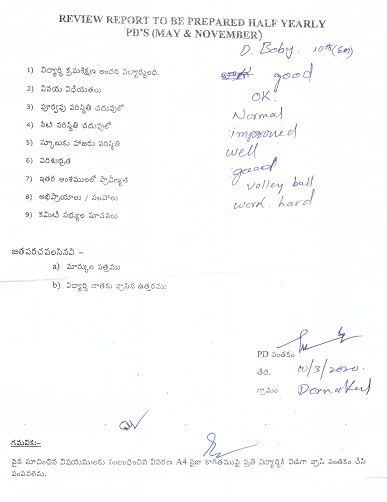 REVIEW REPORT TO BE PREPARED HALF YEARLY
PD'S (MAY & NOVEMBER)
D. Boby. 10th (EM)
1) విద్యార్థి క్రమశిక్షణ అందరి విద్యార్థులది. good
2) వినయ విధేయతలు OK.
3) పూర్వపు పరిస్థితి చదువులో Normal
4) నేటి పరిస్థితి చదువులో improved
5) స్కూలుకు హాజరు పరిస్థితి well
6) పరిశుభ్రత good
7) ఇతర అంశములలో ప్రావీణ్యత volley ball
8) అభిప్రాయాలు / సలహాలు work hard
9) కమిటీ సభ్యుల సూచనలు
జతపరచవలసినవి –
a) మార్కుల పత్రము
b) విద్యార్థి దాతకు వ్రాసిన ఉత్తరము
PD సంతకం
తేది. 10/3/2020.
గ్రామం Dornakal
గమనిక:-
పైన సూచించిన విషయములకు సంబంధించిన వివరణ A4 సైజు కాగితముపై ప్రతి విద్యార్థికి విడిగా వ్రాసి సంతకం చేసి
పంపవలెను.